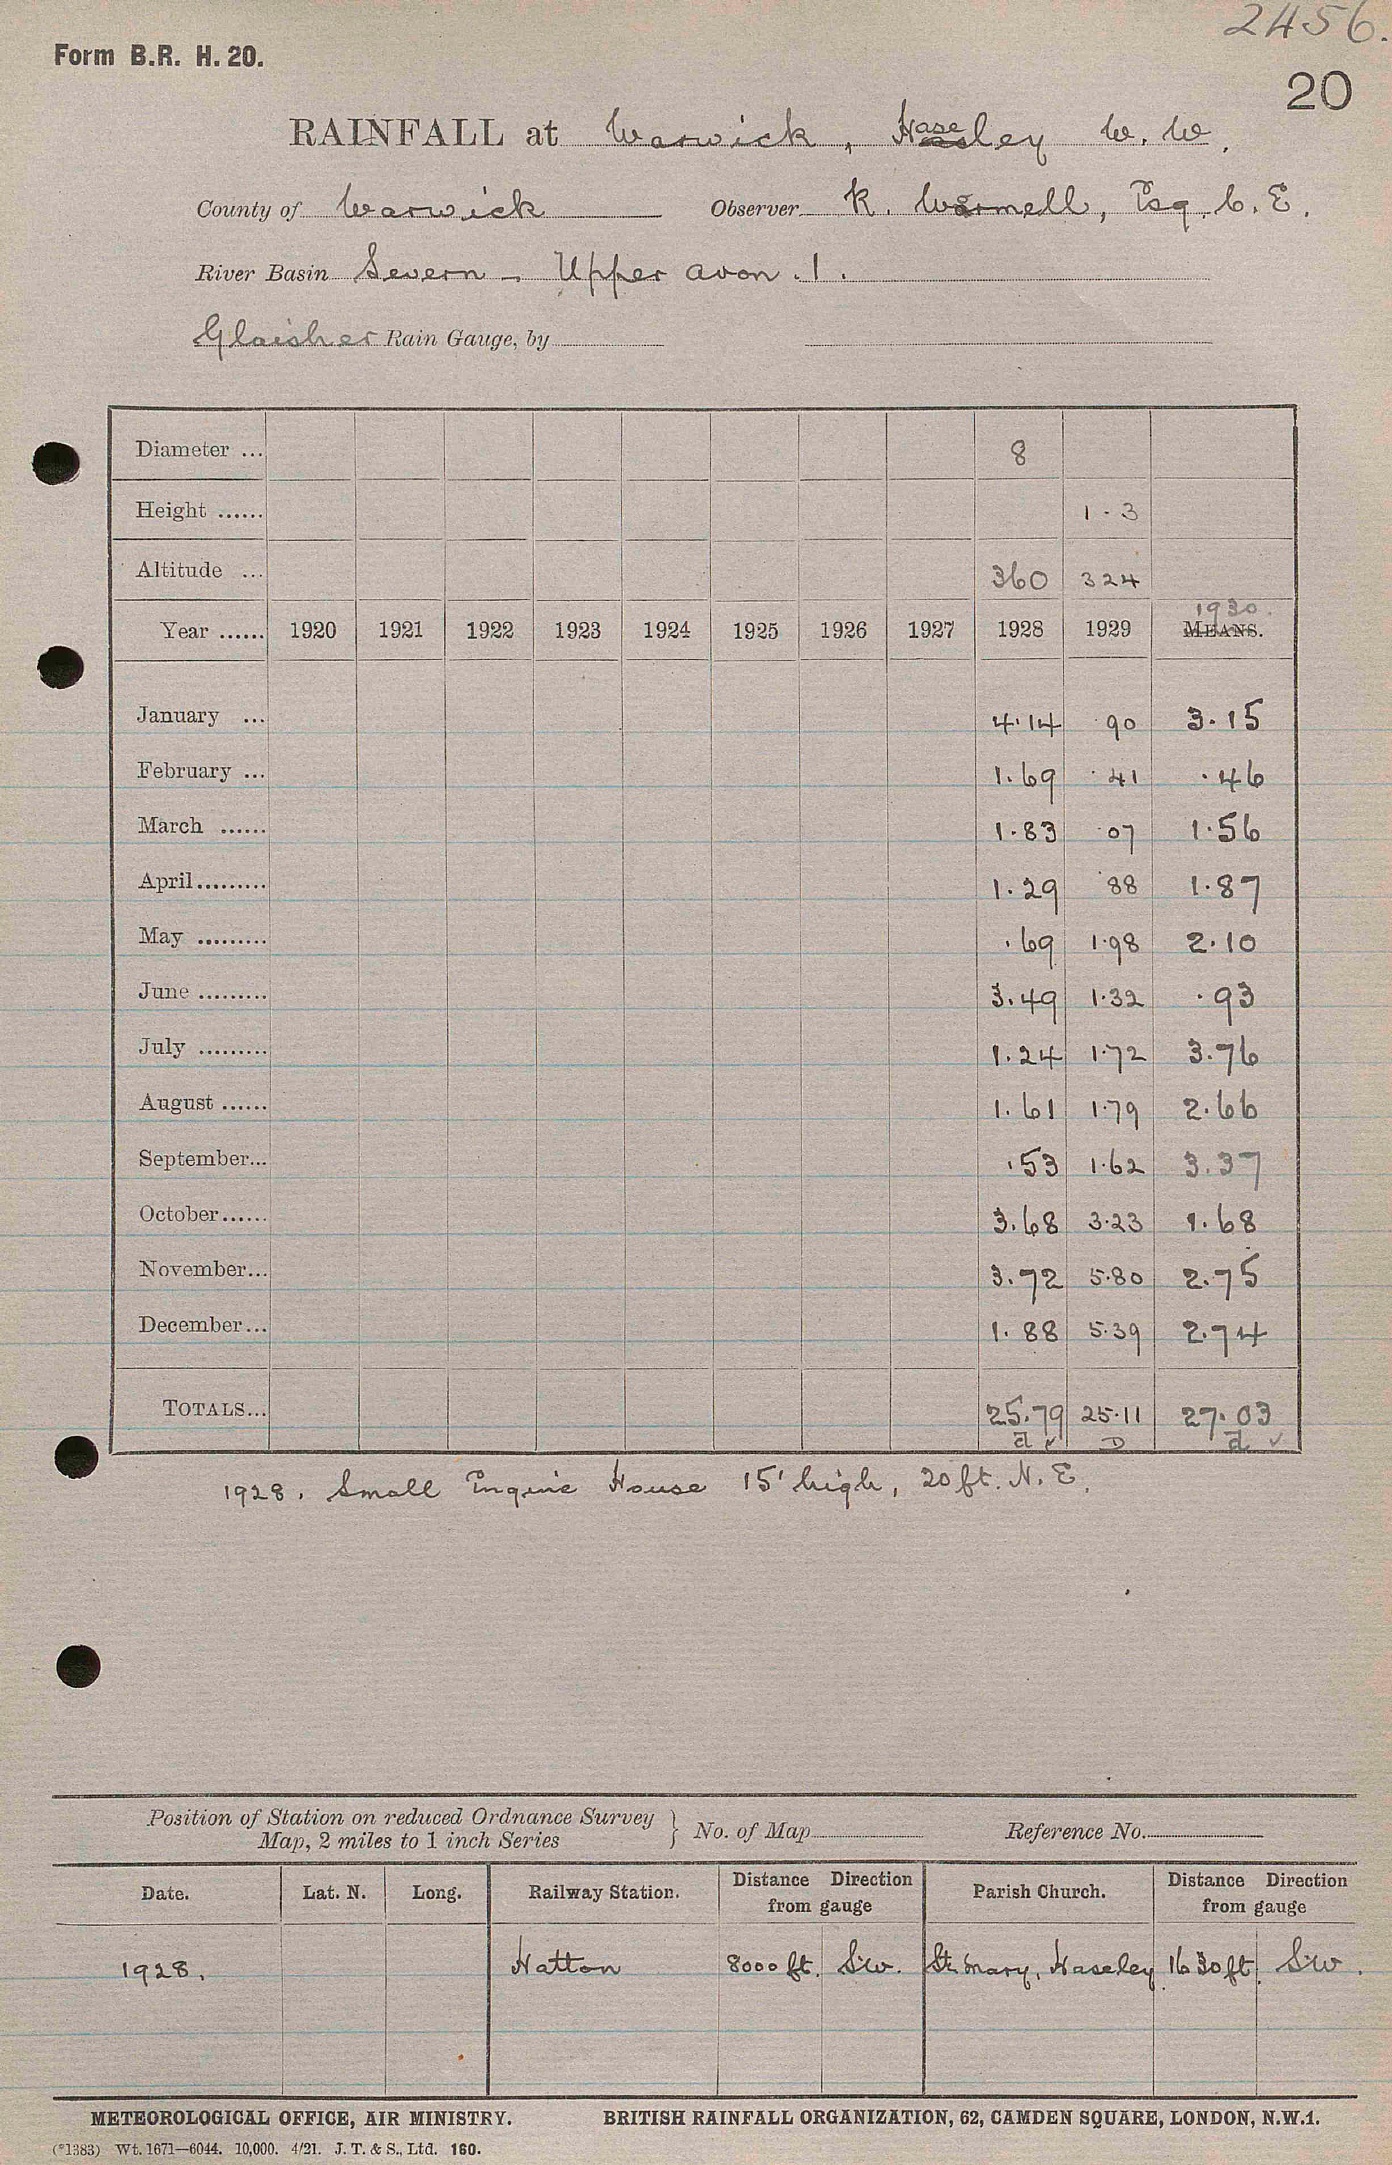 2456.
Form B.R. H. 20.
20
RAINFALL at Warwick, Haseley W. W.
County of Warwick Observer R. Wormell, Esq. C. E.
River Basin Severn - Upper Avon. 1.
Glaisher Rain Gauge, by
Diameter ... 8
Height ...... 1 - 3
Altitude ... 360 324
1930.
Year ...... 1920 1921 1922 1923 1924 1925 1926 1927 1928 1929 MEANS.
January ... 4.14 .90 3.15
February ... 1.69 .41 .46
March ...... 1.83 .07 1.56
April......... 1.29 .88 1.87
May ......... .69 1.98 2.10
June ......... 3.49 1.32 .93
July ......... 1.24 1.72 3.76
August ...... 1.61 1.79 2.66
September... .53 1.62 3.37
October...... 3.68 3.23 1.68
November... 3.72 5.80 2.75
December... 1.88 5.39 2.74
TOTALS... 25.79 25.11 27.03
1928. Small Engine House 15' high, 20 ft. N. E.
Position of Station on reduced Ordnance Survey
Map, 2 miles to 1 inch Series } No. of Map Reference No.
Date. Lat. N. Long. Railway Station. Distance Direction from gauge Parish Church. Distance Direction from gauge
1928. Hatton 8000 ft. SW. St. Mary, Haseley 1630 ft. SW.
METEOROLOGICAL OFFICE, AIR MINISTRY. BRITISH RAINFALL ORGANIZATION, 62, CAMDEN SQUARE, LONDON, N.W.1.
(*1383) Wt. 1671—6044. 10,000. 4/21. J. T. & S., Ltd. 160.